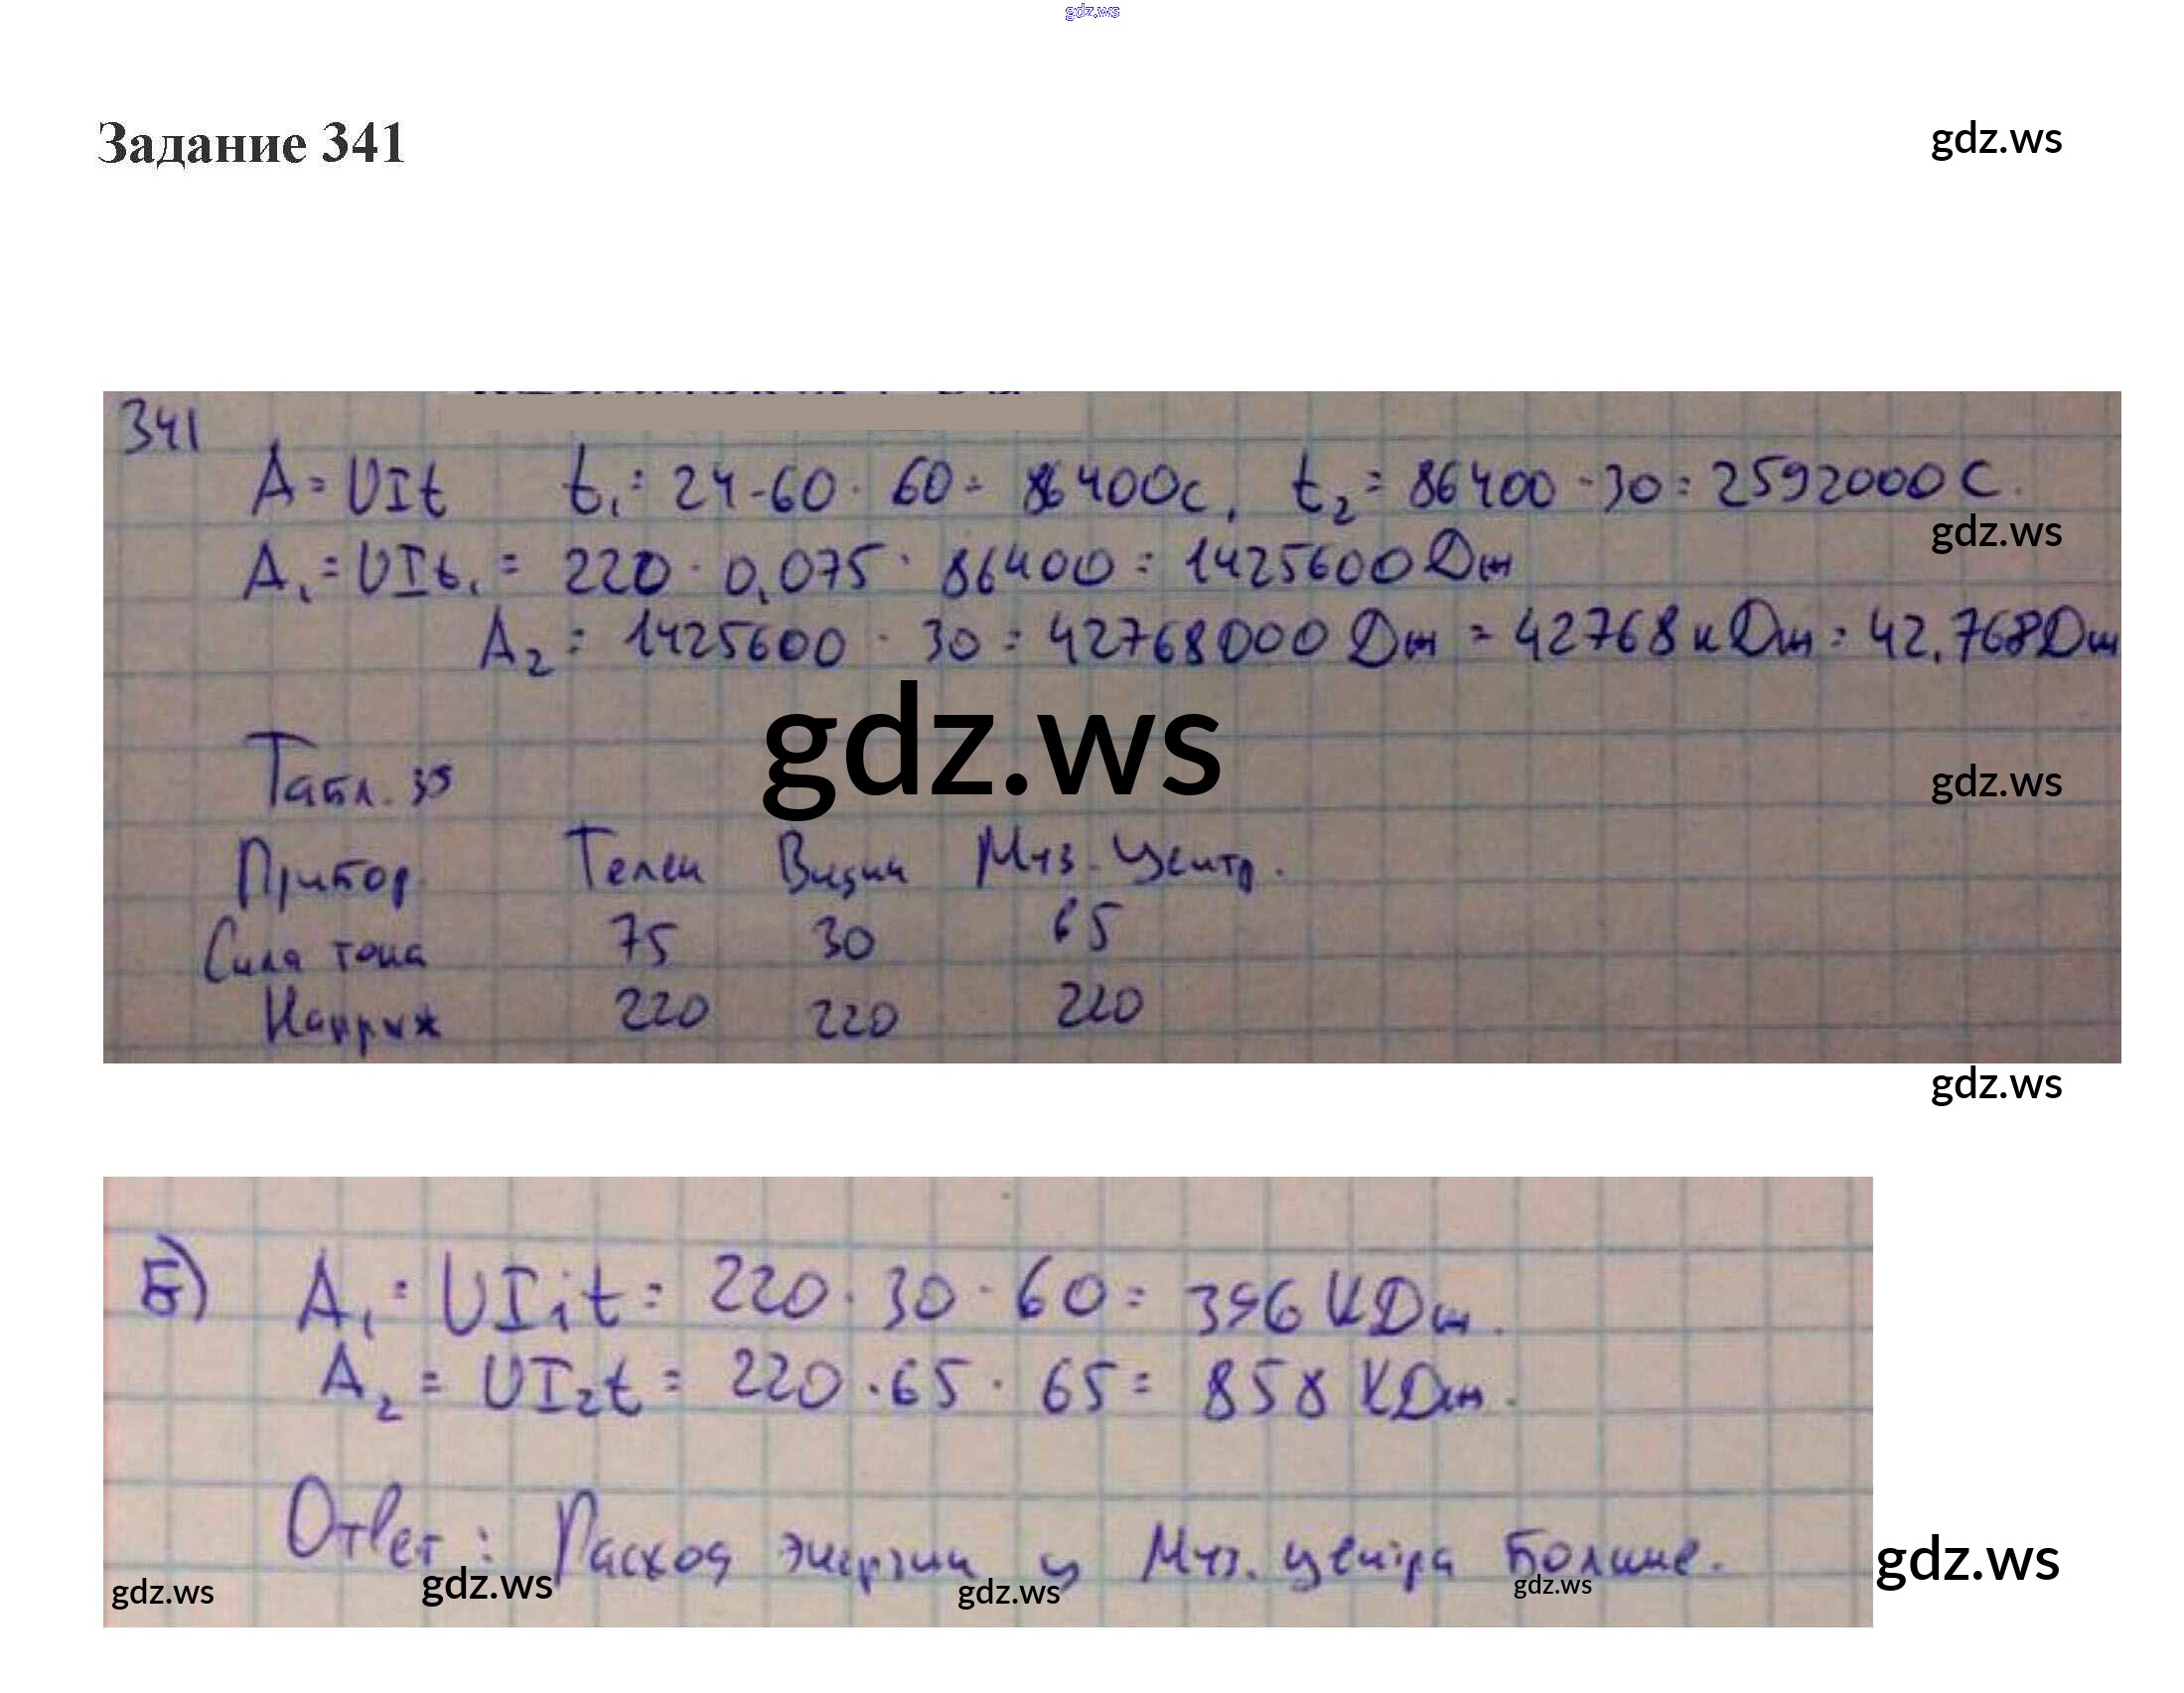 gdz.ws
Задание 341
gdz.ws
341
A = UIt t₁ = 24 · 60 · 60 = 86400 с, t₂ = 86400 · 30 = 2592000 С.
gdz.ws
A₁ = UIt₁ = 220 · 0,075 · 86400 = 1425600 Дж
A₂ = 1425600 · 30 = 42768000 Дж = 42768 кДж = 42,768 Дж
gdz.ws
Табл. 39
gdz.ws
Прибор Телеи Видии Муз. Центр.
Сила тока 75 30 65
Напряж 220 220 220
gdz.ws
Б) A₁ = UI₁t = 220 · 30 · 60 = 396 КДж.
A₂ = UI₂t = 220 · 65 · 65 = 858 КДж.
Ответ: Расход энергии у Муз. центра Больше.
gdz.ws
gdz.ws gdz.ws gdz.ws gdz.ws